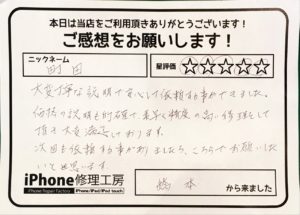 本日は当店をご利用頂きありがとうございます!
ご感想をお願いします!
ニックネーム
町田
星評価 ☆☆☆☆☆
大変丁寧な説明で安心して依頼する事ができました。
価格の説明も的確で、素早く精度の高い修理をして
頂き大変満足しております。
次回も依頼する事がありましたら、こちらでお願いした
いと思います
iPhone修理工房
iPhone Repair Factory
iPhone/iPad/iPod touch
橋本
から来ました